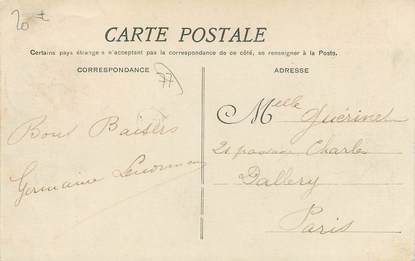 20 €
CARTE POSTALE
Certains pays étrangers n'acceptant pas la correspondance de ce côté, se renseigner à la Poste.
CORRESPONDANCE
77
Bons Baisers
Germaine
ADRESSE
Melle Guérinet
21 passage Charles
Dallery
Paris